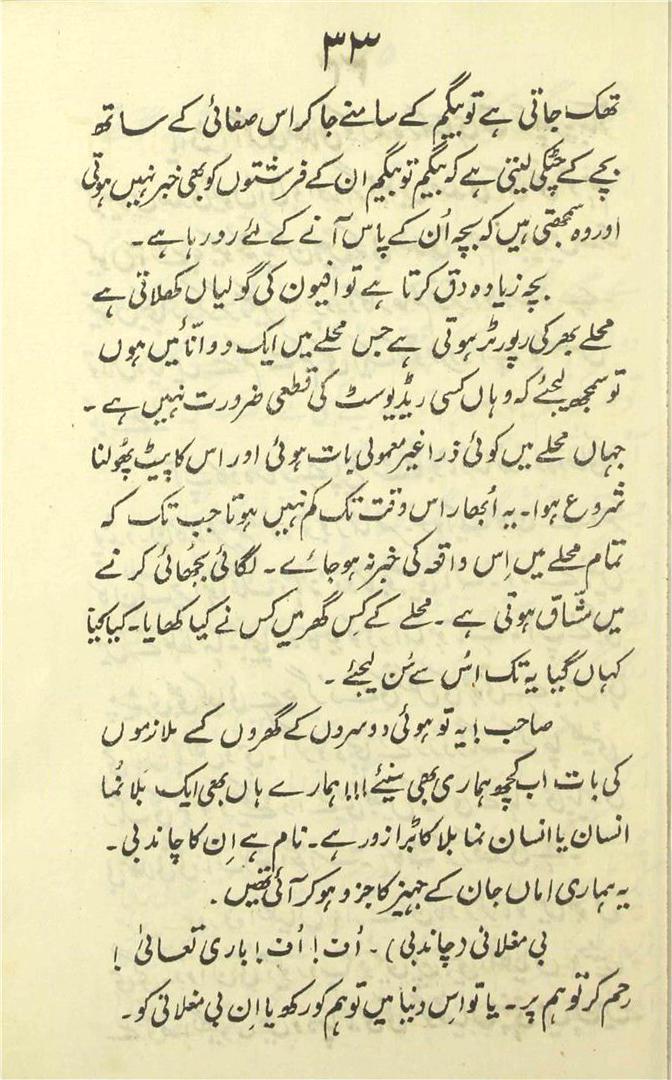 ۳۳
تھک جاتی ہے تو بیگم کے سامنے جا کر اس صفائی کے ساتھ
بچے کے چٹکی لیتی ہے کہ بیگم تو بیگم ان کے فرشتوں کو بھی خبر نہیں ہوتی
اور وہ سمجھتی ہیں کہ بچہ اُن کے پاس آنے کے لئے رو رہا ہے۔
بچہ زیادہ دق کرتا ہے تو افیون کی گولیاں کھلاتی ہے
محلے بھر کی رپورٹر ہوتی ہے جس محلے میں ایک دو انّائیں ہوں
تو سمجھ لیجئے کہ وہاں کسی ریڈیوسٹ کی قطعی ضرورت نہیں ہے۔
جہاں محلے میں کوئی ذرا غیر معمولی بات ہوئی اور اس کا پیٹ پھُولنا
شروع ہوا۔ یہ اُبھار اس وقت تک کم نہیں ہوتا جب تک کہ
تمام محلے میں اِس واقعہ کی خبر نہ ہو جائے۔ لگائی بجھائی کرنے
میں مشّاق ہوتی ہے۔ محلے کے کِس گھر میں کس نے کیا کھایا۔ کیا کیا
کہاں گیا یہ تک اُس سے سُن لیجئے۔
صاحب! یہ تو ہوئی دوسروں کے گھروں کے ملازموں
کی بات اب کچھ ہماری بھی سنیئے!!! ہمارے ہاں بھی ایک بَلا نُما
انسان یا انسان نما بلا کا بڑا زور ہے۔ نام ہے اِن کا چاند بی۔
یہ ہماری اماں جان کے جہیز کا جزو ہو کر آئی تھیں۔
بی مغلانی (چاند بی)۔ اُف! اُف! باری تعالیٰ!
رحم کر تو ہم پر۔ یا تو اِس دنیا میں تو ہم کو رکھ یا اِن بی مغلانی کو۔